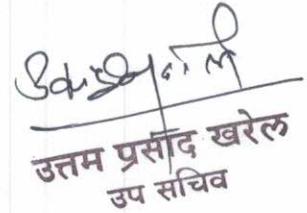 उत्तम प्रसाद खरेल
उप सचिव